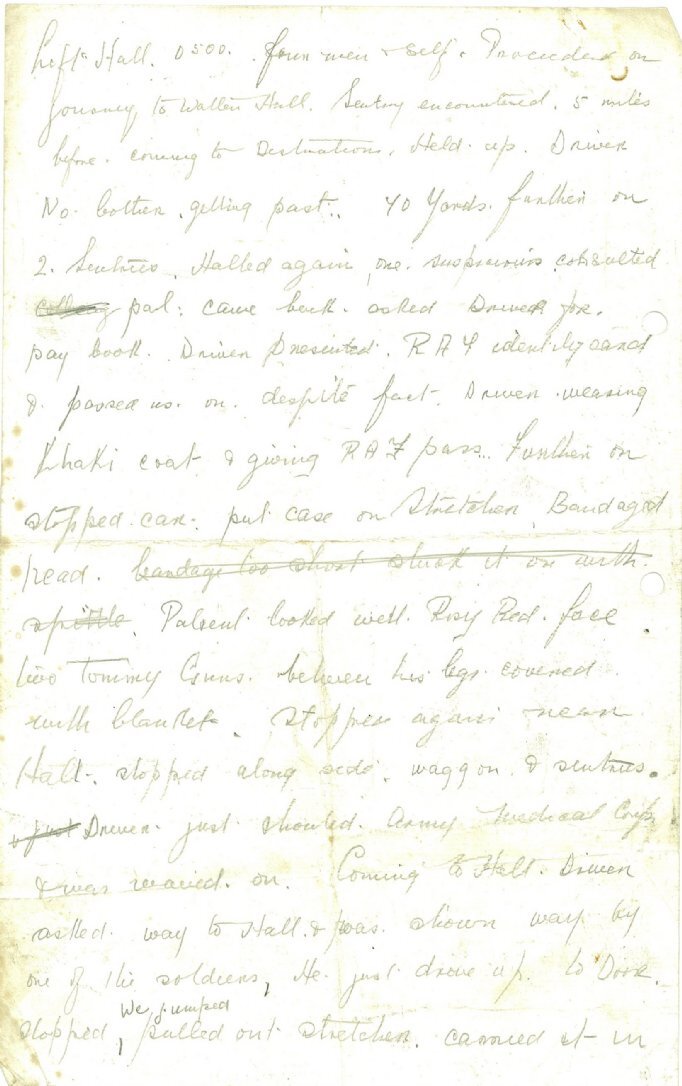 Left Hall. 0500. four men & self. Proceeded on
journey to Walton Hall. Sentry encountered. 5 miles
before. coming to Destination. Held up. Driver
No. bother. getting past.. 40 Yards. further on
2. Sentries. Halted again, one. suspicious. consulted
pal; came back. asked Driver for.
pay book. Driver Presented. RAF identity card
& passed us. on. despite fact. Driver wearing
Khaki coat & giving RAF pass.. Further on
stopped car. put case on Stretcher. Bandaged
head. bandage too short stuck it on with.
spittle. Patient looked well. Rosy Red. face
two Tommy Guns. between his legs covered.
with blanket. Stopped again near
Hall. stopped along side. waggon. & sentries.
& just Driver. just shouted. Army Medical Corps
& was waved. on. Coming to Hall. Driver
asked. way to Hall. & was. shown way by
one of the soldiers, He just drove up. to Door.
We jumped
stopped, pulled out stretcher. carried it in